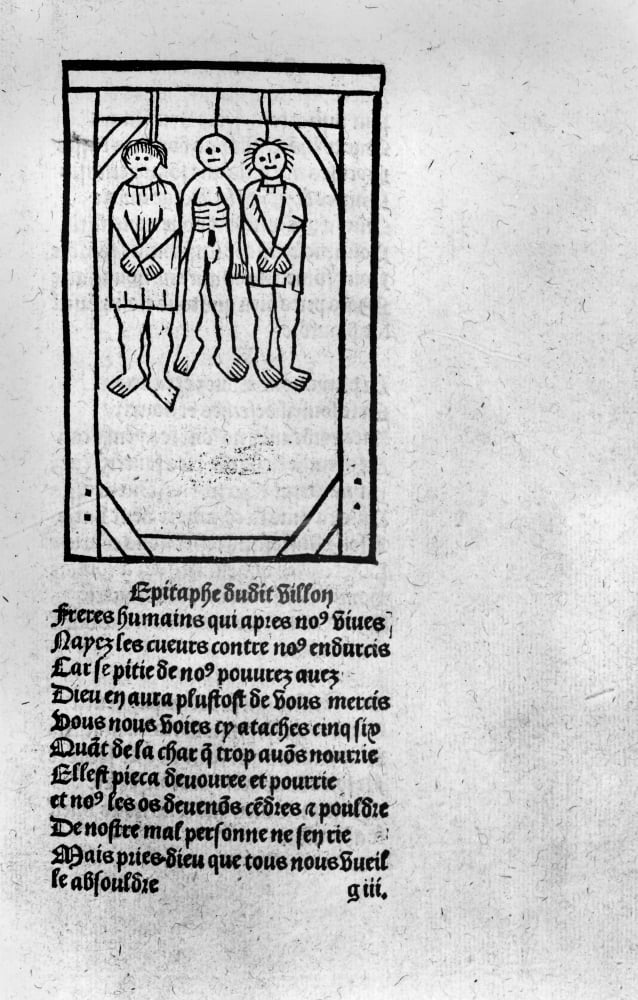 Epitaphe dudit Villon
Freres humains qui apres noꝰ viues
Nayez les cueurs contre noꝰ endurcis
Car se pitie de noꝰ pouurez auez
Dieu en aura plustost de vous mercis
Vous nous voies cy ataches cinq six
Quāt de la char q̄ trop auōs nourrie
Ellest pieca deuouree et pourrie
et noꝰ les os deuenōs cēdres ⁊ pouldre
De nostre mal personne ne sen rie
Mais pries dieu que tous nous vueil
le absouldre g iii.